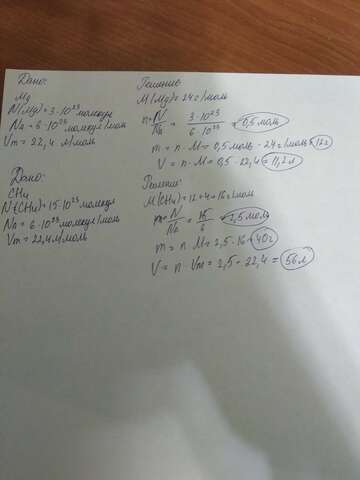 Дано:
Mg
N(Mg)=3·10²³ молекул
Na=6·10²³ молекул/моль
Vm=22,4 л/моль
Решение
M(Mg)=24г/моль
n=N/Na=3·10²³/6·10²³=0,5 моль
m=n·M=0,5моль·24г/моль=12г
V=n·M=0,5·22,4=11,2л
Дано:
CH₄
N(CH₄)=15·10²³ молекул
Na=6·10²³ молекул/моль
Vm=22,4 л/моль
Решение:
M(CH₄)=12+4=16г/моль
n=N/Na=15/6=2,5 моль
m=n·M=2,5·16=40г
V=n·Vm=2,5·22,4=56л